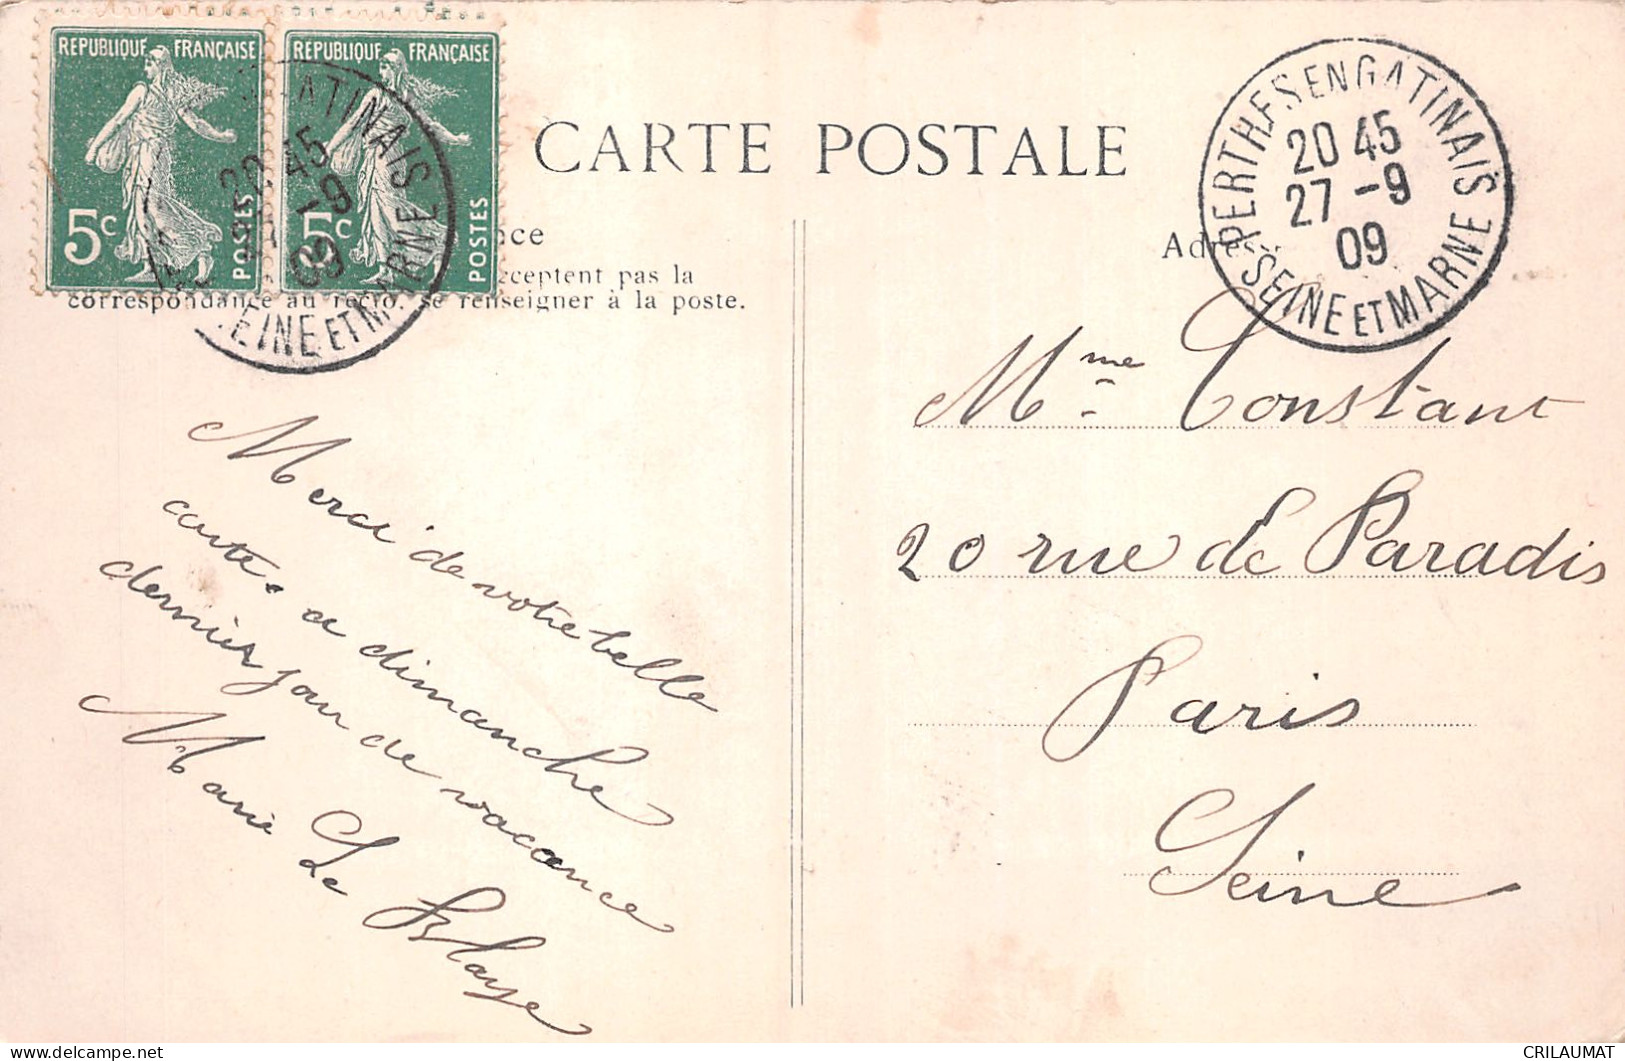 REPUBLIQUE FRANÇAISE
5c
POSTES
REPUBLIQUE FRANÇAISE
5c
POSTES
ATINAIS
20 45
-9
09
EINE ET MARNE
CARTE POSTALE
nce
cceptent pas la
correspondance au recto, se renseigner à la poste.
Adres
PERTHES EN GATINAIS
20 45
27 -9
09
SEINE ET MARNE
Merci de votre belle
carte. a dimanche
dernier jour de vacance
Marie Le Blaye
Mme Constant
20 rue de Paradis
Paris
Seine
CRILAUMAT